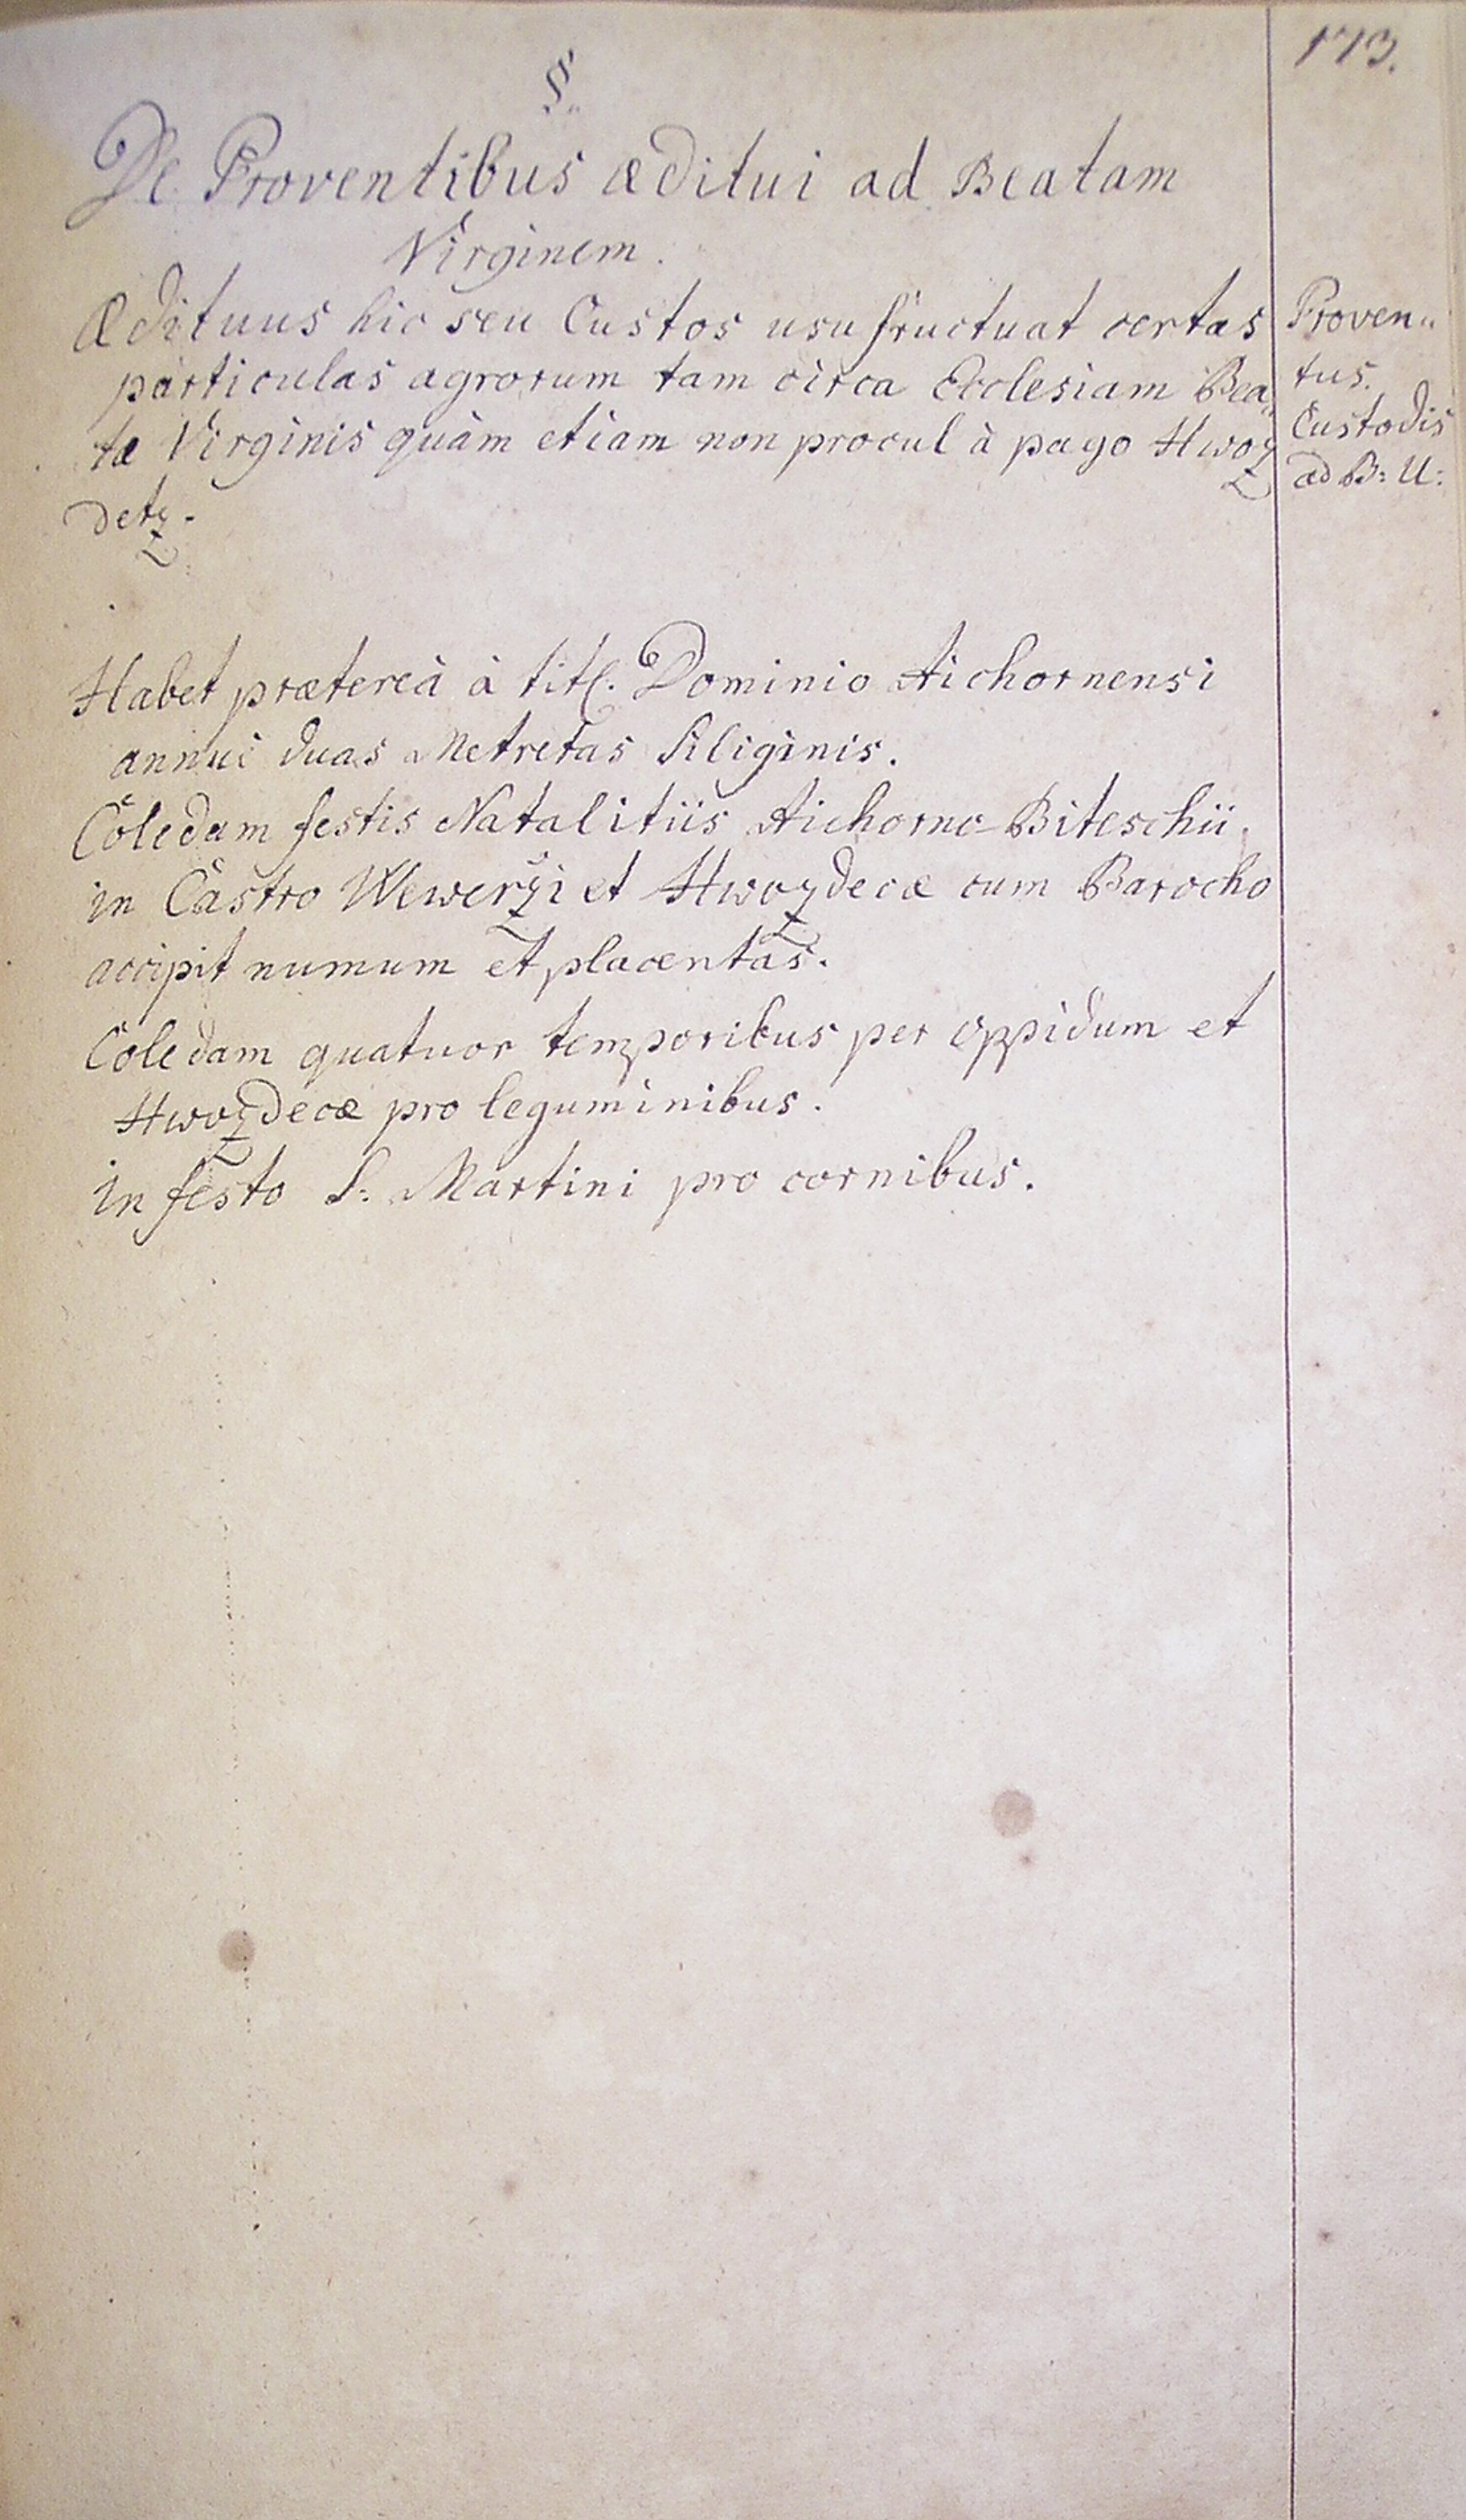 173.
§
De Proventibus æditui ad Beatam
Virginem.
Ædituus hic seu Custos usufructuat certas
particulas agrorum tam circa Ecclesiam Bea„
tæ Virginis quàm etiam non procul à pago Hwoz
detz.
Proven„
tus.
Custodis
ad B: V:
Habet prætereà à titl. Dominio Aichornensi
annui duas Metretas siliginis.
Coledam festis Natalitiis Aichorno-Biteschii
in Castro Wewerzi et Hwozdecæ cum Parocho
accipit numum et placentas.
Coledam quatuor temporibus per oppidum et
Hwozdecæ pro leguminibus.
in festo S: Martini pro cornibus.